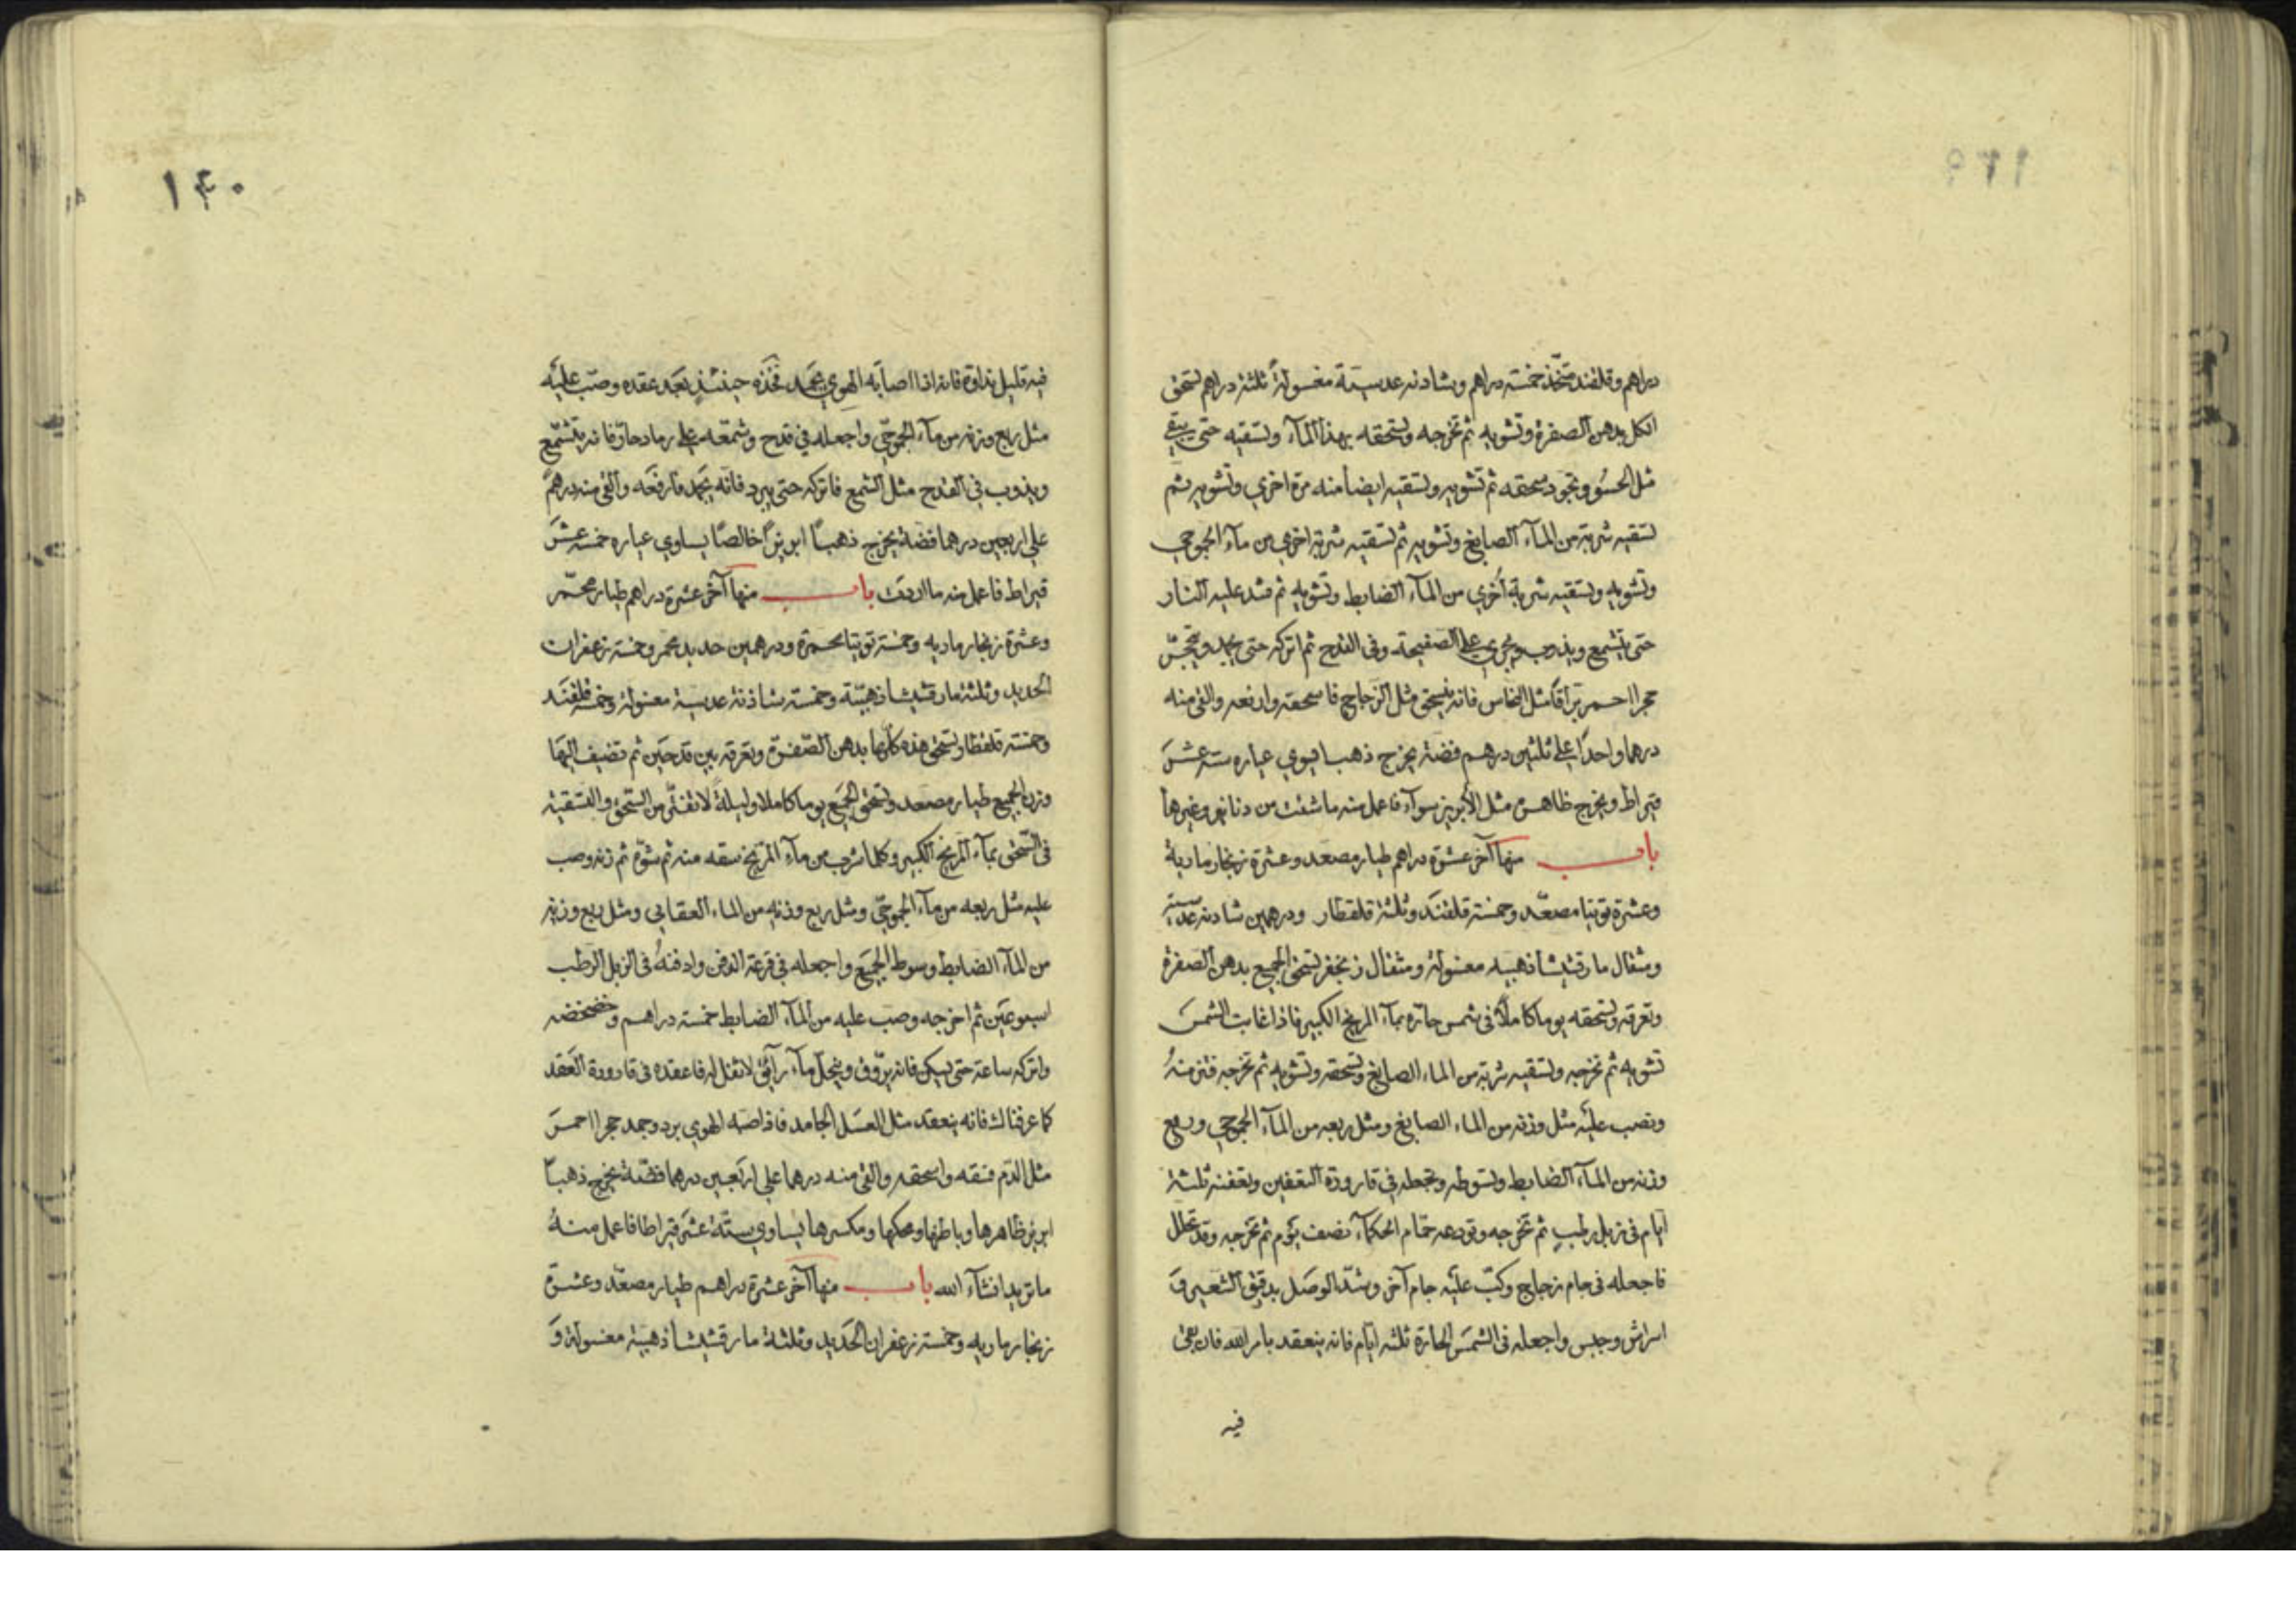 دراهم وقلفند متخذ خمسة دراهم وشادنه عدسية مغسولة ثلثة دراهم تسحق
الكل بدهن الصفرة وتشويه ثم تخرجه وتسحقه بهذا المآء وتسقيه حتى يبقى
مثل الحسُو وتجود سحقه ثم تشويه وتسقيه ايضا منه مرة اخري وتشويه ثم
تسقيه شربة من المآء الصابغ وتشويه ثم تسقيه شربة اخري من مآء
وتشويه وتسقيه شربة أخري من المآء الضابط وتشويه ثم تشد عليه النار
حتى يتشمع ويذوب ويجري على الصفيحة وفى القدح ثم اتركه حتى يجمد
حجرا احمر برّاقا مثل النحاس فانه ينسحق مثل الزجاج فاسحقه وارفعه والقي منه
درهما واحدًا على ثلثين درهم فضة يخرج ذهبا يسوي عياره ستة عشر
قيراط ويخرج ظاهره مثل الأبريز سوآء فاعمل منه ما شئت من دنانير وغيرها
باب منها آخر عشرة دراهم طيار مصعد وعشرة زنجار مادية
وعشرة توتيا مصعّد وخمسة قلفند وثلثة قلقطار ودرهمين شادنه عدسية
ومثقال مارقشيشا ذهبيه مغسولة ومثقال زنجفر تسحق الجميع بدهن الصفرة
وتعرقه وتسحقه يوما كاملاً فى شمس حارّه بمآء المريخ الكبير فاذا غابت الشمس
تشويه ثم تخرجه وتسقيه شربة من المآء الصابغ وتسحقه وتشويه ثم تخرجه فتزنهُ
وتصب عليه مثل وزنه من المآء الصابغ ومثل ربعه من المآء وربع
وزنه من المآء الضابط وتسوطه وتجعله فى قارورة التعفين وتعفنه ثلثة
ايّام فى زبل رطب ثم تخرجه وتودعه حمّام الحكمآء نصف يَوم ثم تخرجه وقد تحلل
فاجعله فى جام زجاج وكبّ عليه جام آخر وشدّ الوصَل بدقيق الشعير و
اسراش وجبس واجعله فى الشمس الحارّة ثلثه ايّام فانه ينعقد بامر الله فان بقى
فيه
١٤٠
فيه قليل نداوة فانه اذا اصابه الهوي يجمد فخذه حينئذٍ بَعد عقده وصبّ عليه
مثل ربع وزنه من مآء واجعله في قدح وشمّعه على رماد حارّ فانه يتشمّع
ويذوب فى القدح مثل الشمع فاتركه حتى يبرد فانّه يجمد فارفعه والقي منه درهم
على اربعين درهما فضة يخرج ذهباً ابريزاً خالصًا يساوي عياره خمسة عشر
قيراط فاعمل منه ما اردت باب منها آخر عشرة دراهم طيار محمّر
وعشرة زنجار ماديه وخمسة توتيا محمرة ودرهمين حديد محمر وخمسة زعفران
الحديد وثلثة مارقشيشا ذهبيّة وخمسة شاذنة عدسية مغسولة وخمسة قلفند
وخمسة قلقطار وتسحق هذه كلّها بدهن الصّفرة وتعرقه بين قدحين ثم تضيف اليها
وزن الجميع طيار مصعد وتسحق الجميع يوما كاملا وليلة لا تفتر من السّحق والتسقية
فى السّحق بمآء المريخ الكبير وكلما شرب من مآء المرّيخ تسقه منه ثم شوّه ثم زنه وصب
عليه مثل ربعه من مآء ومثل ربع وزنه من المآء العقابي ومثل ربع وزنه
من المآء الضابط وسوط الجميع واجعله فى قرعة الدفن وادفنهُ فى الزبل الرطب
اسبوعين ثم اخرجه وصب عليه من المآء الضابط خمسة دراهم وخضخضه
واتركه ساعة حتى يسكن فانه يروّق وينحلّ مآء رآئق لا ثفل له فاعقده فى قارورة العقد
كما عرفناك فانه ينعقد مثل العسَل الجامد فاذا اصابه الهوي برد وجمد حجرا احمر
مثل الدّم فنقه واسحقه والقى منه درهما علي اربعين درهما فضّة يخرج ذهبا
ابريز ظاهرها وباطنها ومحكها ومكسرها يساوي ستّة عشر قيراطا فاعمل منهُ
ما تريد انشآء الله باب منها آخر عشرة دراهم طيار مصعّد وعشرة
زنجار ماديه وخمسة زعفران الحَديد وثلثة مارقشيشا ذهبية مغسولة و